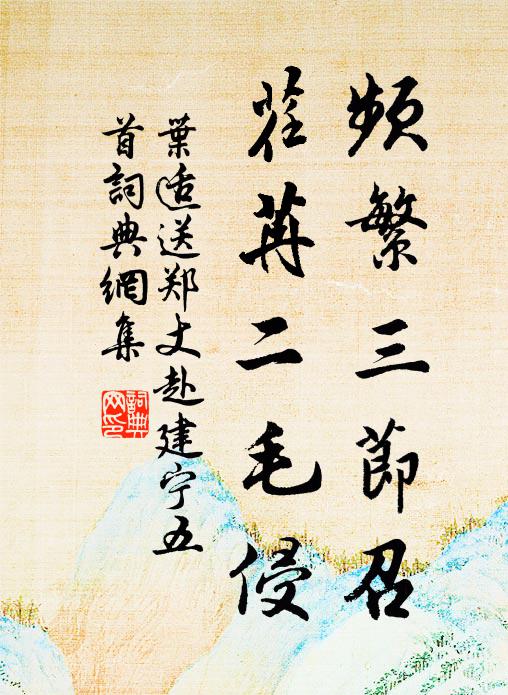 频繁三莭召
荏苒二毛侵
葉适送郑丈赴建宁五
首詞典網集
詞典
网印